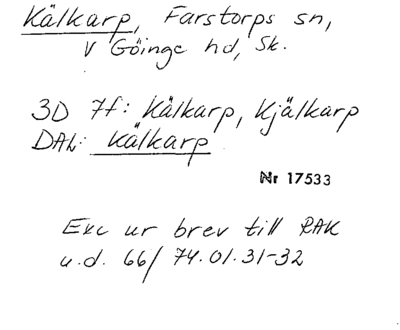 Kälkarp, Farstorps sn,
V Göinge hd, Sk.
3D 7f: Kälkarp, Kjälkarp
DAL: Kälkarp
Nr 17533
Exc ur brev till RAK
u.d. 66/ 74.01.31-32